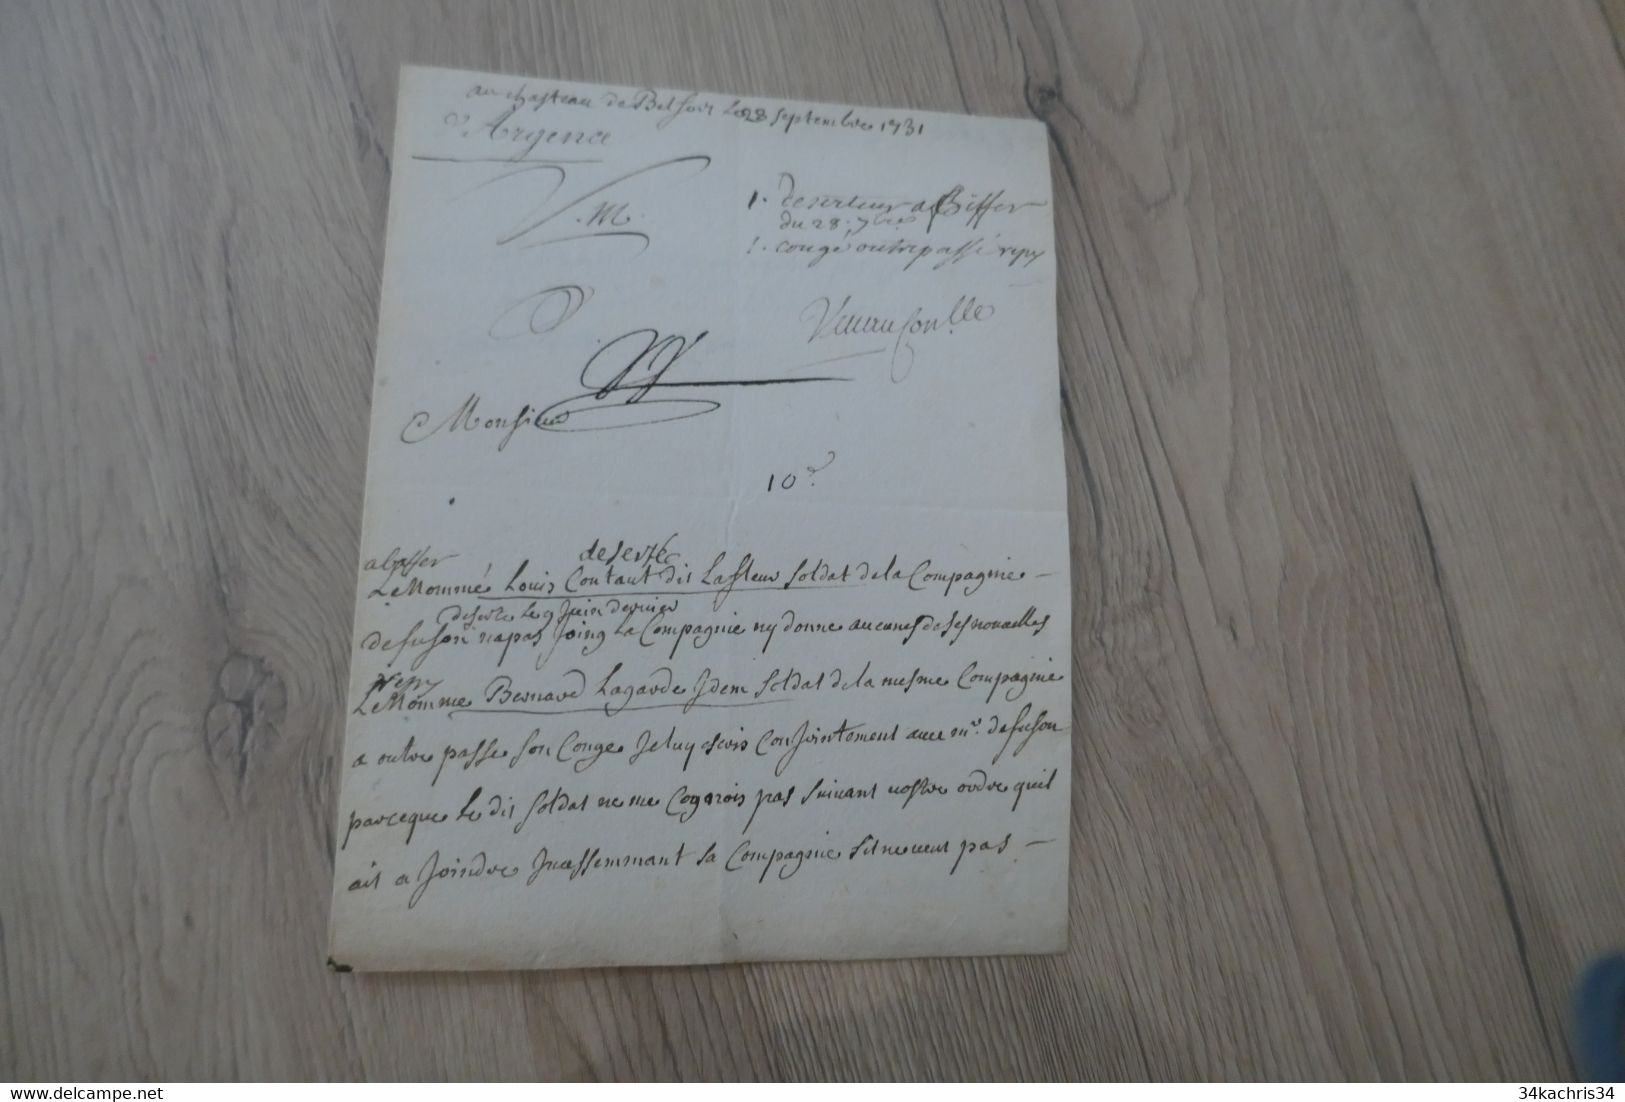 au chasteau de Belsoir le 28 septembre 1731
d'Argence
V. M.
1. deserteur a Biffer
du 28. 7bre
1. congé outrepassé
Monsieur
10e.
a biffer
deserté
Le Nommé Louis Contaut dit Lafleur soldat de la Compagnie
deserté le 9 Juin dernier
defuson napas Joing La Compagnie ny donne aucunes de ses nouuelles
Le Nomme Bernard Lagarde Idem soldat de la mesme Compagnie
a outre passe son Conge Jeluy escris ConJointement auec mr. defuson
parceque le dit soldat ne me Cognois pas suiuant nostre ordre quil
ait a Joindre Incessemmant sa Compagnie pas
www.delcampe.net
34kachris34